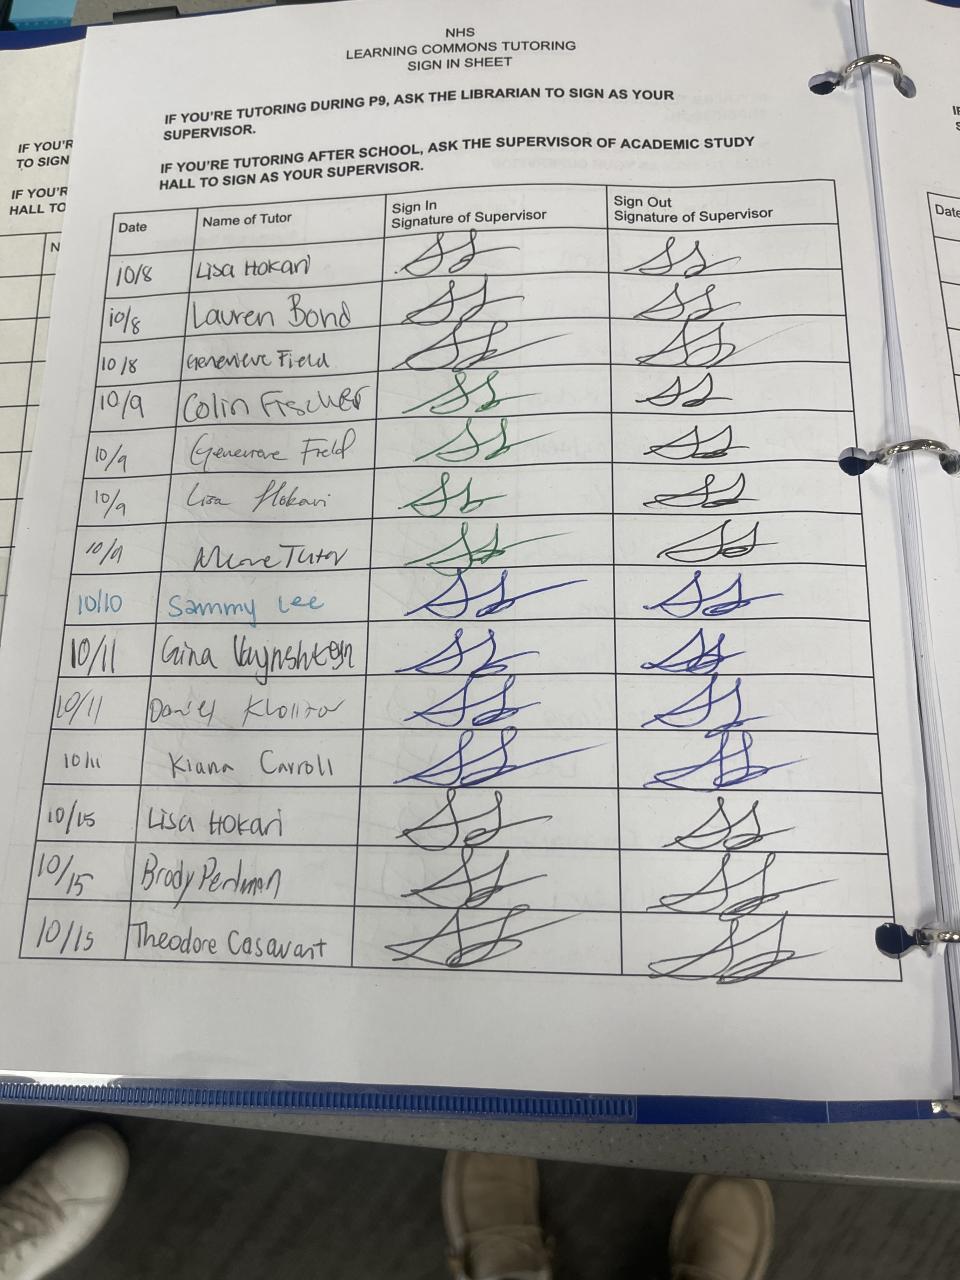 NHS
LEARNING COMMONS TUTORING
SIGN IN SHEET
IF YOU'RE TUTORING DURING P9, ASK THE LIBRARIAN TO SIGN AS YOUR
SUPERVISOR.
IF YOU'RE TUTORING AFTER SCHOOL, ASK THE SUPERVISOR OF ACADEMIC STUDY
HALL TO SIGN AS YOUR SUPERVISOR.
Date Name of Tutor Sign In Signature of Supervisor Sign Out Signature of Supervisor
10/8 Lisa Hokari
10/8 Lauren Bond
10/8 Genevieve Field
10/9 Colin Fischer
10/9 Genevieve Field
10/9 Lisa Hokari
10/9 Tutor
10/10 Sammy Lee
10/11 Gina Vaynshteyn
10/11 Daniel
10/11 Kiana Carroll
10/15 Lisa Hokari
10/15 Brody Perlman
10/15 Theodore Casavant
IF YOU'R
TO SIGN
IF YOU'R
HALL TO
N
Date